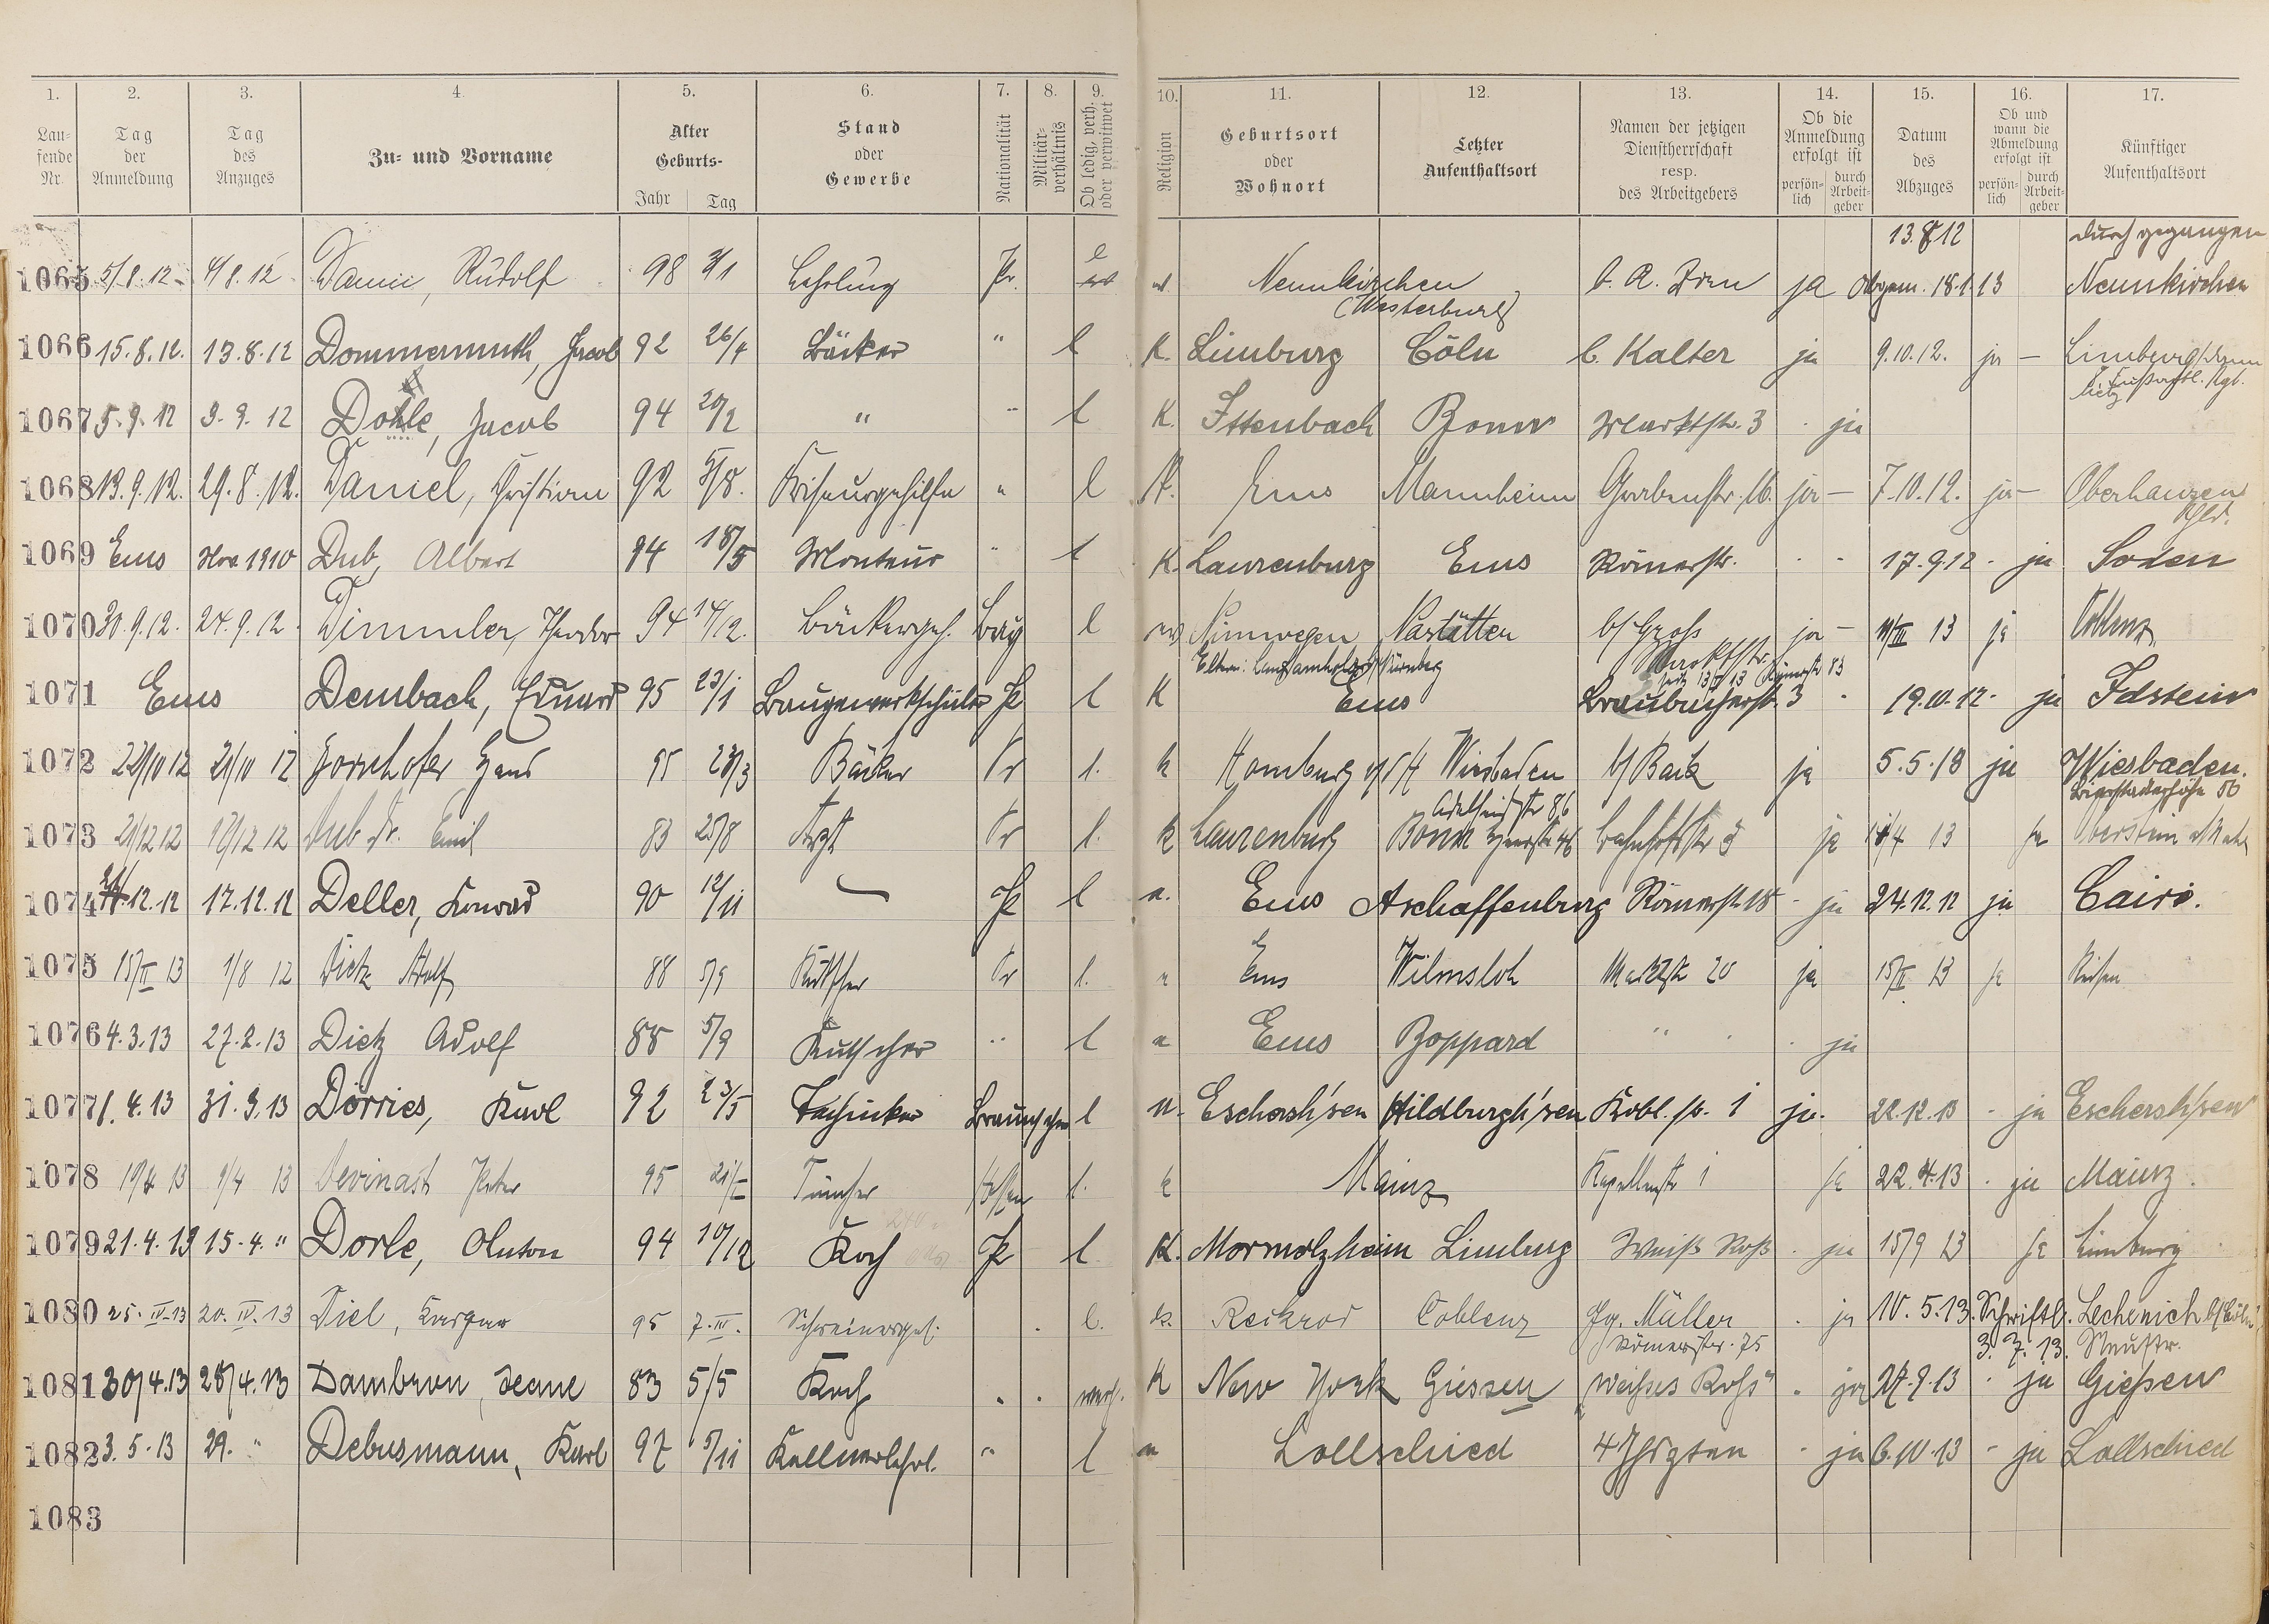 1. 2. 3. 4. 5. 6. 7. 8. 9. 10. 11. 12. 13. 14. 15. 16. 17.
Lau- fende Nr. Tag der Anmeldung Tag des Anzuges Zu- und Vorname Alter Geburts- Jahr Tag Stand oder Gewerbe Nationalität Militär- verhältnis Ob ledig, verh. oder verwitwet Religion Geburtsort oder Wohnort Letzter Aufenthaltsort Namen der jetzigen Dienstherrschaft resp. des Arbeitgebers Ob die Anmeldung erfolgt ist persön- lich durch Arbeit- geber Datum des Abzuges Ob und wann die Abmeldung erfolgt ist persön- lich durch Arbeit- geber Künftiger Aufenthaltsort
13.8.12 durchgegangen
1065 5/8.12 4/8.12 Rudolf 98 Lehrling Pr. l Neunkirchen ja 18.1.13 Neunkirchen
(Westerburg)
1066 15.8.12. 13.8.12 Dommermuth, Jacob 92 26/4 Bäcker " l K. Limburg Cöln b. Kalter ja 9.10.12. ja — Limburg
1067 5.9.12 3.9.12 Dohle, Jacob 94 20/2 " " l K. Ittenbach Bonn Marktstr. 3 ja
1068 13.9.12. 29.8.12. Daniel, Christian 92 5/8. Friseurgehilfe " l K. Ems Mannheim Grabenstr. 16. ja — 7.10.12. ja — Oberhausen
Rhld.
1069 Ems Nov. 1910 Dub, Albert 94 18/5 Monteur " l K. Laurenburg Ems Römerstr. - - 17.9.12 - ja Soden
1070 30.9.12. 24.9.12. Dimmler, Theodor 94 14/12. Bäckergeh. Bay l Nimwegen Nastätten b/ Groß ja — III 13 ja Koblenz
Marktstr.
Eltern: Nürnberg Römerstr 83
1071 Ems Dembach, Eduard 95 23/1 Baugewerkschüler Pr l K Ems Braubacherstr. 3 - 19.10.12. ja Idstein
1072 22/10 12 21/10 12 Hans 95 23/3 Bäcker Pr l. k Homburg v/d H Wiesbaden b/ Back ja 5.5.13 ja Wiesbaden.
Adelheidstr 86 Bierstadterhöhe 56
1073 21/12 12 12 12 Dub Dr. Emil 83 25/8 Arzt Pr l. k Laurenburg Bonn 46 Bahnhofstr 3 ja 13 ja Oberstein a/Nahe
1074 12.12 17.12.12 Deller, Konrad 90 12/11 Pr l Ems Aschaffenburg Römerstr. 18 - ja 24.12.12 ja Cairo.
1075 15/II 13 1/8 12 Dietz Adolf 88 5/9 Kutscher Pr l. Ems Wilmsloh Marktstr 20 ja 15/II 13 ja Reisen
1076 4.3.13 27.2.13 Dietz Adolf 88 5/9 Kutscher " l Ems Boppard " ja
1077 1.4.13 31.3.13 Dörries, Karl 92 23/5 Techniker l Eschersh'sen Hildburgh'sen Kobl. str. 1 ja. 22.12.13 - ja Eschersh'sen
1078 19/4 13 9/4 13 Peter 95 Tüncher Hessen l. k Mainz Kapellenstr 1 ja 22.4.13 - ja Mainz.
1079 21.4.13 15.4. " Dorle, Anton 94 10/12 Koch Pr l K. Mormolzheim Limburg Weiß Roß - ja 15/9 13 ja Limburg
1080 25.IV.13 20.IV.13 Diel, Kaspar 95 7.III. Schreinergeh. l. k. Reckrod Coblenz Jg. Müller ja 10.5.13. Schriftl. Lechenich b/ Cöln
Römerstr. 75 3.7.13. Neustr.
1081 30/4.13 28/4.13 Dambron, 83 5/5 Koch " verh. K New York Giessen „Weißes Roß" - ja 27.9.13 - ja Gießen
1082 3.5.13 29. " Debusmann, Karl 97 5/11 Kellnerlehrl. " l Lollschied 4 Jhrzten - ja 6.10.13 - ja Lollschied
1083